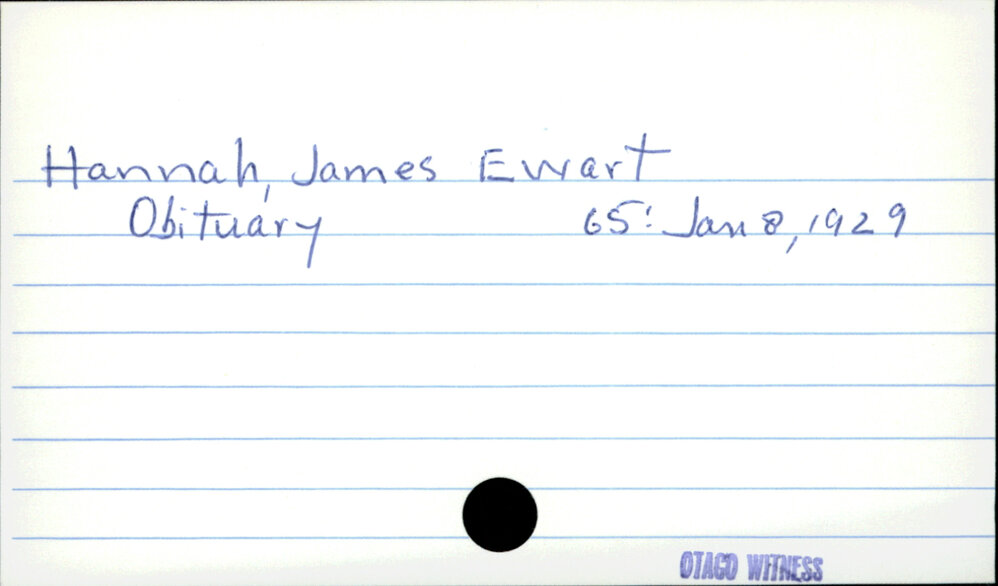 Hannah, James Ewart
Obituary 65: Jan 8, 1929
OTAGO WITNESS